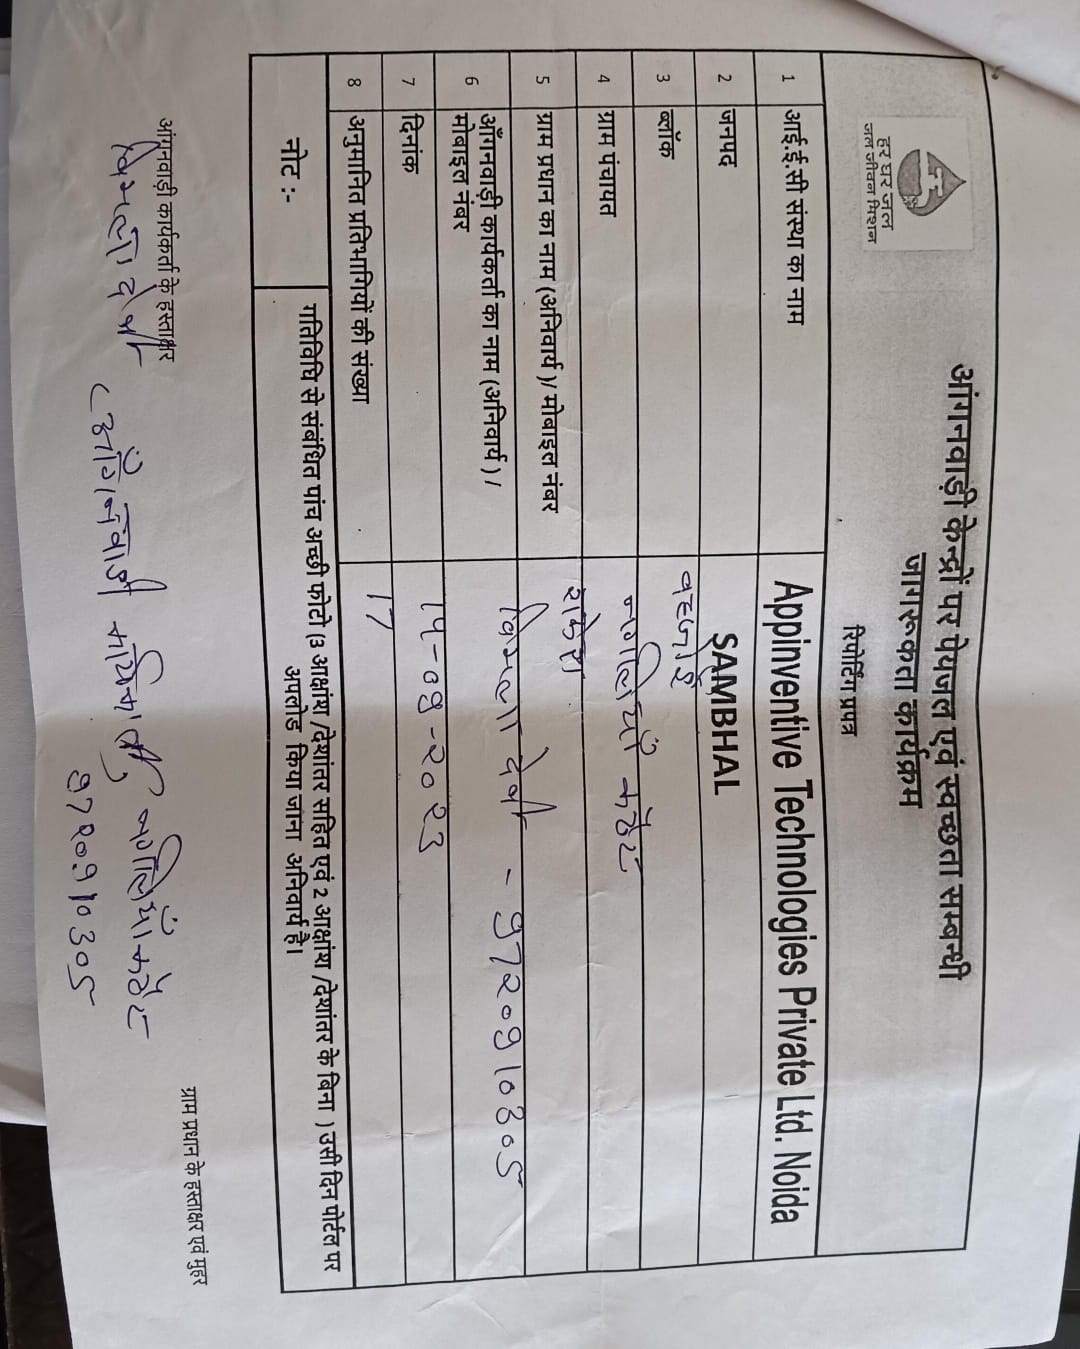 हर घर जल
जल जीवन मिशन
आंगनवाड़ी केन्द्रों पर पेयजल एवं स्वच्छता सम्बन्धी
जागरूकता कार्यक्रम
रिपोर्टिंग प्रपत्र
1 आई.ई.सी संस्था का नाम Appinventive Technologies Private Ltd. Noida
2 जनपद SAMBHAL
3 ब्लॉक बहजोई
4 ग्राम पंचायत
5 ग्राम प्रधान का नाम (अनिवार्य )/ मोबाइल नंबर राकेश
6 आँगनवाड़ी कार्यकर्ता का नाम (अनिवार्य ) /
मोबाइल नंबर विमला देवी - 9720910305
7 दिनांक 14-09-2023
8 अनुमानित प्रतिभागियों की संख्या 17
नोट :- गतिविधि से संबंधित पांच अच्छी फोटो (3 आक्षांश /देशांतर सहित एवं 2 आक्षांश /देशांतर के बिना ) उसी दिन पोर्टल पर
अपलोड किया जाना अनिवार्य है।
आंगनवाड़ी कार्यकर्ता के हस्ताक्षर
ग्राम प्रधान के हस्ताक्षर एवं मुहर
विमला देवी
9720910305